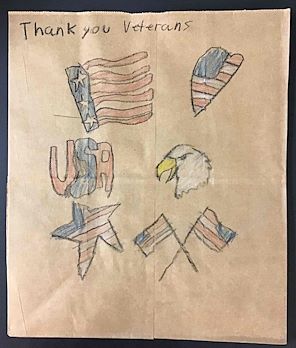 Thank you Veterans
USA